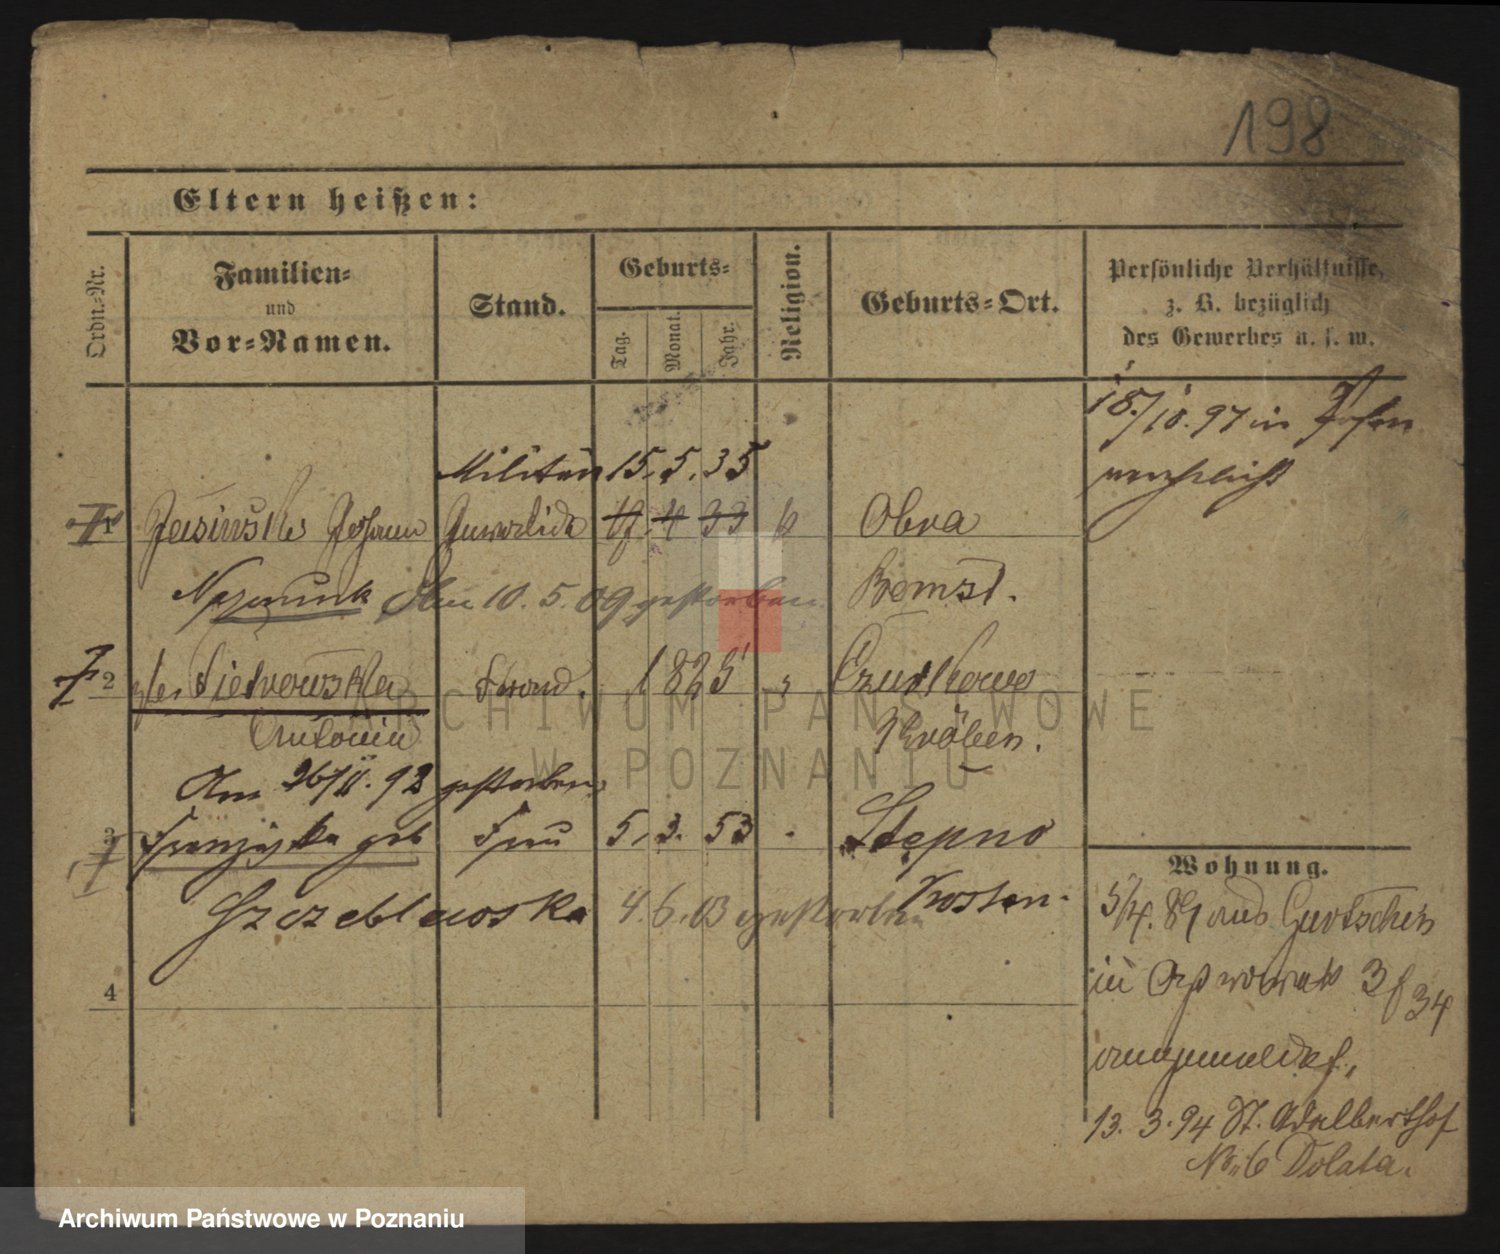 198
Eltern heißen:
Ordn.-Nr.
Familien-
und
Vor-Namen.
Stand.
Geburts-
Tag.
Monat.
Jahr.
Religion.
Geburts-Ort.
Persönliche Verhältnisse,
z. B. bezüglich
des Gewerbes u. s. w.
18./10.97 in Posen
verehelicht
Militär 15. 5. 35
1 Jasinski Johann Invalide 17. 4 33 k Obra
Nepomuk Am 10. 5. 09 gestorben Bomst.
2 Frau. 1825 Czurkowo
Antonin Kröben.
Am 26/11. 92 gestorben
3 Franziska geb Frau 5. 3. 53 Stepno
Szczeblewska 4. 6. 03 gestorben Kosten.
4
Wohnung.
5/4. 89 aus Gurtschin
in Ostrowek 3 f 34
angemeldet,
13. 3. 94 St. Adalberthof
No 6 Dolata.
ARCHIWUM PAŃSTWOWE
W POZNANIU
Archiwum Państwowe w Poznaniu